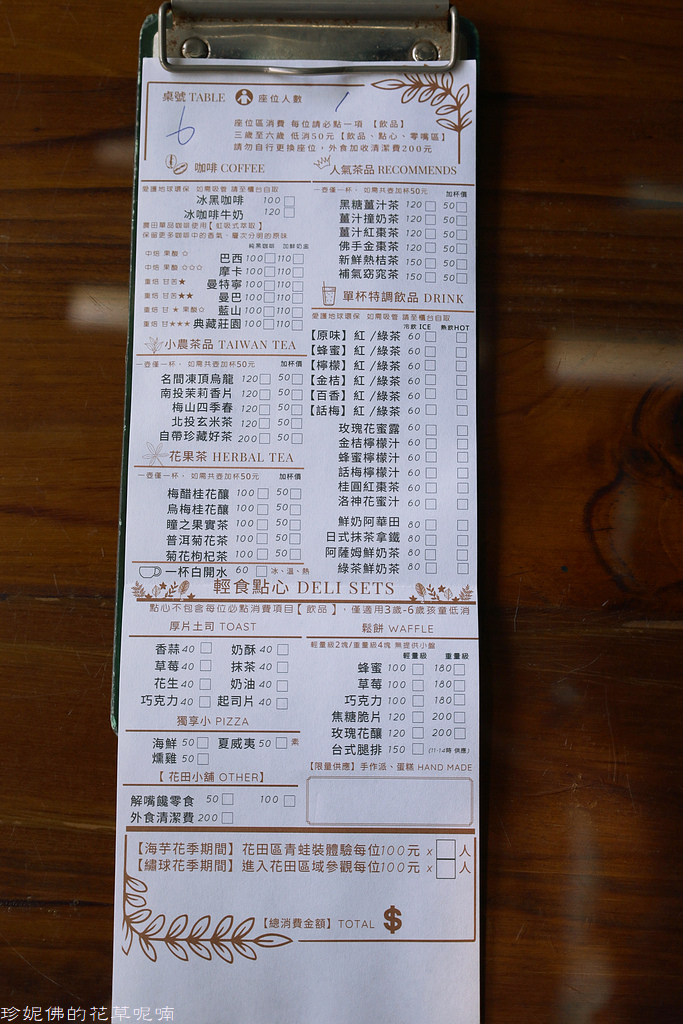 桌號 TABLE 座位人數
6 1
座位區消費 每位請必點一項 【飲品】
三歲至六歲 低消50元【飲品、點心、零嘴區】
請勿自行更換座位，外食加收清潔費200元
咖啡 COFFEE
愛護地球環保 如需吸管 請至櫃台自取
冰黑咖啡 100
冰咖啡牛奶 120
農田單品咖啡使用【虹吸式萃取】
保留更多咖啡中的香氣，層次分明的原味
純黑咖啡 加鮮奶油
中焙 果酸 ☆ 巴西 100 110
中焙 果酸 ☆☆☆ 摩卡 100 110
重焙 甘苦★ 曼特寧 100 110
重焙 甘苦★★ 曼巴 100 110
重焙 甘 ★ 果酸☆ 藍山 100 110
重焙 甘★★★ 典藏莊園 100 110
小農茶品 TAIWAN TEA
一壺僅一杯，如需共壺加杯50元 加杯價
名間凍頂烏龍 120 50
南投茉莉香片 120 50
梅山四季春 120 50
北投玄米茶 120 50
自帶珍藏好茶 200 50
花果茶 HERBAL TEA
一壺僅一杯，如需共壺加杯50元 加杯價
梅醋桂花釀 100 50
烏梅桂花釀 100 50
瞳之果實茶 100 50
普洱菊花茶 100 50
菊花枸杞茶 100 50
一杯白開水 60 冰、溫、熱
人氣茶品 RECOMMENDS
一壺僅一杯，如需共壺加杯50元 加杯價
黑糖薑汁茶 120 50
薑汁撞奶茶 120 50
薑汁紅棗茶 120 50
佛手金棗茶 120 50
新鮮熱桔茶 150 50
補氣窈窕茶 150 50
單杯特調飲品 DRINK
愛護地球環保 如需吸管 請至櫃台自取
冷飲 ICE 熱飲HOT
【原味】紅 /綠茶 60
【蜂蜜】紅 /綠茶 60
【檸檬】紅 /綠茶 60
【金桔】紅 /綠茶 60
【百香】紅 /綠茶 60
【話梅】紅 /綠茶 60
玫瑰花蜜露 60
金桔檸檬汁 60
蜂蜜檸檬汁 60
話梅檸檬汁 60
桂圓紅棗茶 60
洛神花蜜汁 60
鮮奶阿華田 80
日式抹茶拿鐵 80
阿薩姆鮮奶茶 80
綠茶鮮奶茶 80
輕食點心 DELI SETS
點心不包含每位必點消費項目【飲品】，僅適用3歲-6歲孩童低消
厚片土司 TOAST
香蒜 40 奶酥 40
草莓 40 抹茶 40
花生 40 奶油 40
巧克力 40 起司片 40
獨享小 PIZZA
海鮮 50 夏威夷 50 素
燻雞 50
【 花田小舖 OTHER】
解嘴饞零食 50 100
外食清潔費 200
鬆餅 WAFFLE
輕量級2塊/重量級4塊 無提供小盤
輕量級 重量級
蜂蜜 100 180
草莓 100 180
巧克力 100 180
焦糖脆片 120 200
玫瑰花釀 120 200
台式腿排 150 (11-14時 供應)
【限量供應】手作派、蛋糕 HAND MADE
【海芋花季期間】花田區青蛙裝體驗每位100元 x 人
【繡球花季期間】進入花田區域參觀每位100元 x 人
【總消費金額】TOTAL $
珍妮佛的花草呢喃